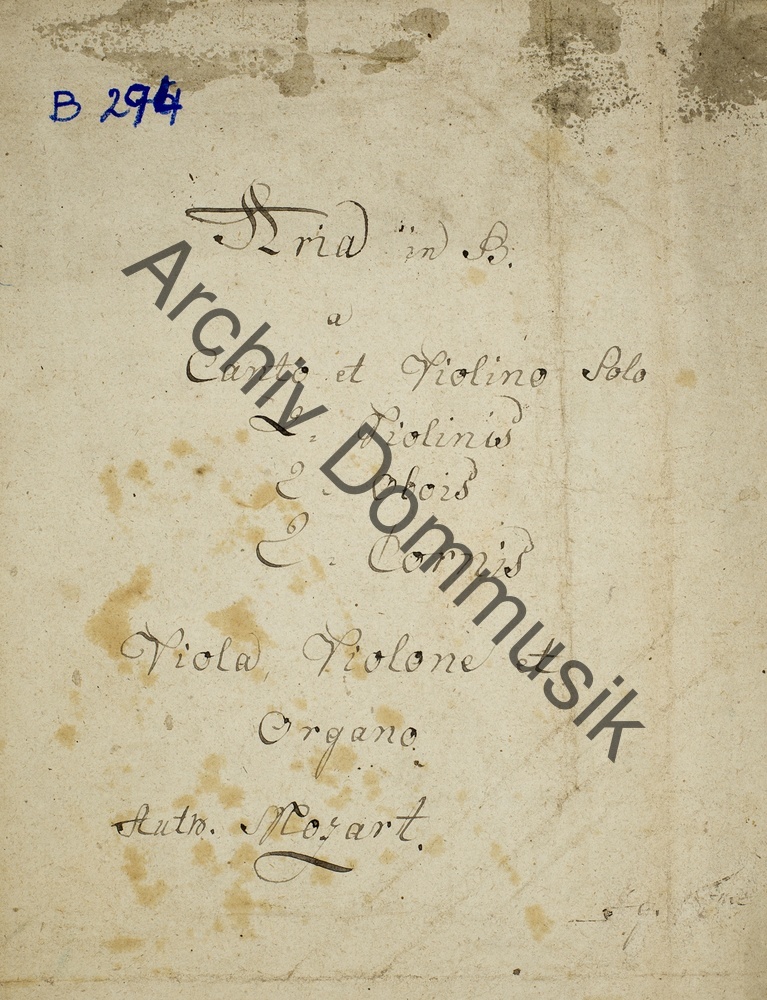 B 294
Aria in B.
a
Canto et Violino Solo
2. Violinis
2. Obois
2. Cornis
Viola, Violone et
Organo
Auth. Mozart.
Archiv Dommusik